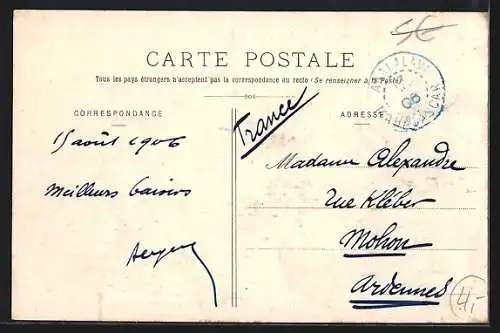 5f
CARTE POSTALE
Tous les pays étrangers n'acceptent pas la correspondance au recto (Se renseigner à la Poste)
CORRESPONDANCE
ADRESSE
France
15 août 1906
Meilleurs baisers
Madame Alexandre
rue Kléber
Mohon
Ardennes
4,-